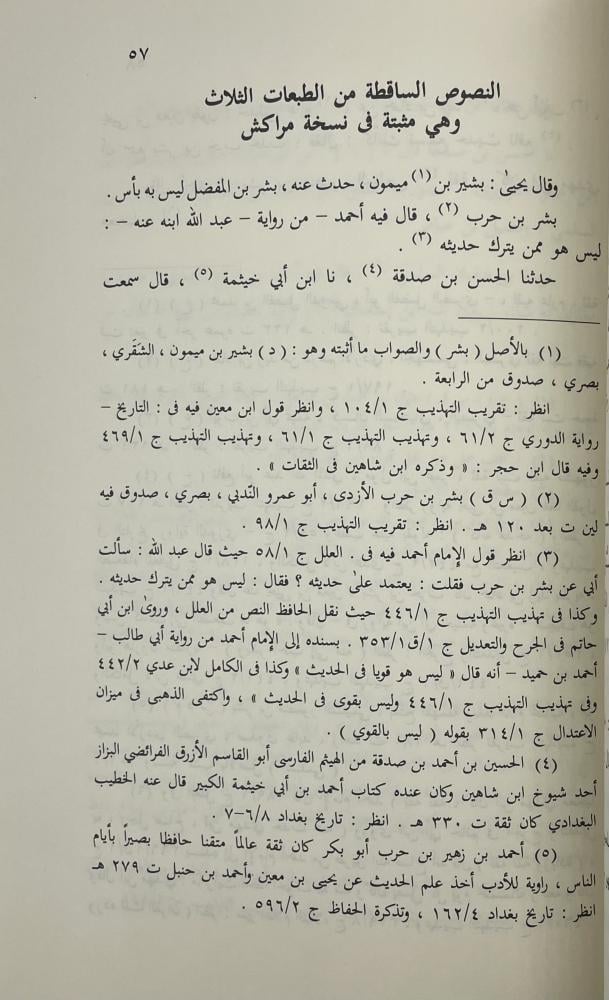 ٥٧
النصوص الساقطة من الطبعات الثلاث
وهي مثبتة فى نسخة مراكش
وقال يحيىٰ : بشير بن (١) ميمون ، حدث عنه ، بشر بن المفضل ليس به بأس .
بشر بن حرب (٢) ، قال فيه أحمد – من رواية – عبد الله ابنه عنه – :
ليس هو ممن يترك حديثه (٣) .
حدثنا الحسن بن صدقة (٤) ، نا ابن أبي خيثمة (٥) ، قال سمعت
(١) بالأصل ( بشر ) والصواب ما أثبته وهو : ( د ) بشير بن ميمون ، الشَقَري ،
بصري ، صدوق من الرابعة .
انظر : تقريب التهذيب ج ١٠٤/١ ، وانظر قول ابن معين فيه فى : التاريخ –
رواية الدوري ج ٦١/٢ ، وتهذيب التهذيب ج ٦١/١ ، وتهذيب التهذيب ج ٤٦٩/١
وفيه قال ابن حجر : « وذكره ابن شاهين فى الثقات » .
(٢) ( س ق ) بشر بن حرب الأزدى ، أبو عمرو النّدبي ، بصري ، صدوق فيه
لين ت بعد ١٢٠ هـ . انظر : تقريب التهذيب ج ٩٨/١ .
(٣) انظر قول الإمام أحمد فيه فى . العلل ج ٥٨/١ حيث قال عبد الله : سألت
أبي عن بشر بن حرب فقلت : يعتمد علىٰ حديثه ؟ فقال : ليس هو ممن يترك حديثه .
وكذا فى تهذيب التهذيب ج ٤٤٦/١ حيث نقل الحافظ النص من العلل ، وروىٰ ابن أبي
حاتم فى الجرح والتعديل ج ١/ق٣٥٣/١ . بسنده إلى الإمام أحمد من رواية أبي طالب –
أحمد بن حميد – أنه قال « ليس هو قويا فى الحديث » وكذا فى الكامل لابن عدي ٤٤٢/٢
وفى تهذيب التهذيب ج ٤٤٦/١ وليس بقوى فى الحديث » ، واكتفى الذهبى فى ميزان
الاعتدال ج ٣١٤/١ بقوله ( ليس بالقوي ) .
(٤) الحسين بن أحمد بن صدقة من الهيثم الفارسى أبو القاسم الأزرق الفرائضي البزاز
أحد شيوخ ابن شاهين وكان عنده كتاب أحمد بن أبي خيثمة الكبير قال عنه الخطيب
البغدادي كان ثقة ت ٣٣٠ هـ . انظر : تاريخ بغداد ٦/٨–٧ .
(٥) أحمد بن زهير بن حرب أبو بكر كان ثقة عالماً متقنا حافظا بصيراً بأيام
الناس ، راوية للأدب أخذ علم الحديث عن يحيى بن معين وأحمد بن حنبل ت ٢٧٩ هـ
انظر : تاريخ بغداد ١٦٢/٤ ، وتذكرة الحفاظ ج ٥٩٦/٢ .